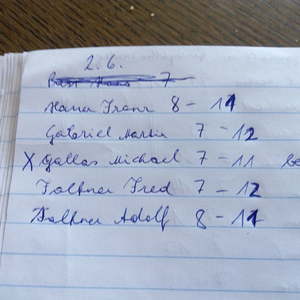 2.6.
7
Franz 8 - 11
Gabriel Martin 7 - 12
X Gallas Michael 7 - 11 be
Falkner Fred 7 - 12
Falkner Adolf 8 - 11